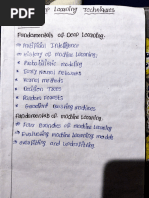 Deep Learning Techniques
Fundamentals of Deep Learning:
Artificial Intelligence
History of Machine Learning
Probabilistic modeling
Early Neural Networks
Kernel methods
Decision Trees
Random Forests
Gradient Boosting Machines
Fundamentals of Machine Learning:
Four Branches of Machine Learning
Evaluating Machine Learning models
Overfitting and Underfitting